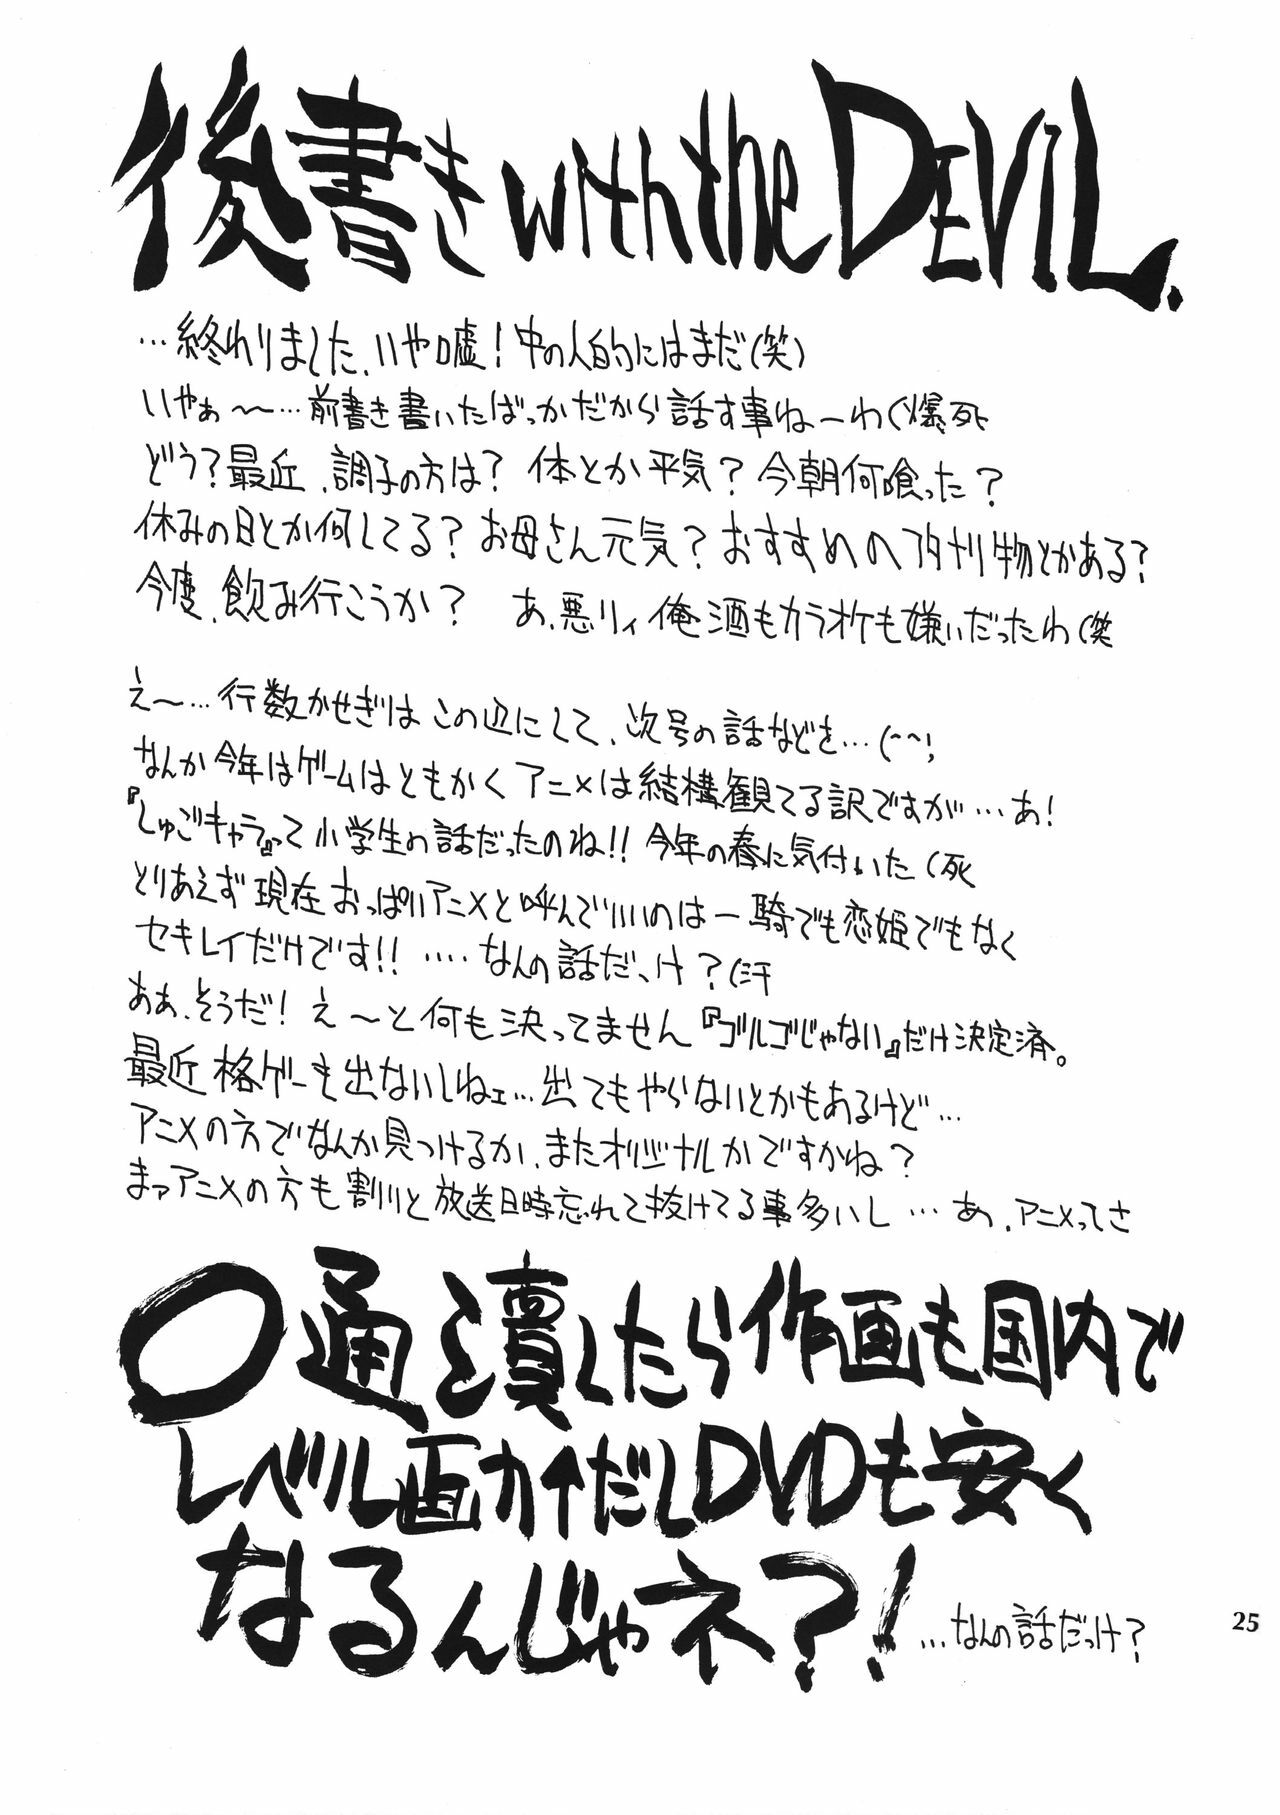 後書き with the DEVIL.
…終わりました、いや嘘!中の人的にはまだ(笑)
いやぁ〜…前書き書いたばっかだから話す事ねーわ(爆死
どう?最近、調子の方は?体とか平気?今朝何喰った?
休みの日とか何してる?お母さん元気?おすすめのフタナリ物とかある?
今度、飲み行こうか? あ、悪リィ俺酒もカラオケも嫌いだったわ(笑
え〜…行数かせぎはこの辺にして、次号の話などを…(^^;
なんか今年はゲームはともかくアニメは結構観てる訳ですが…あ!
『しゅごキャラ』って小学生の話だったのね!!今年の春に気付いた(死
とりあえず現在おっぱいアニメと呼んでいいのは一騎でも恋姫でもなく
セキレイだけです!!‥‥なんの話だっけ?(汗
ああ、そうだ!え〜と何も決ってません『ゴルゴじゃない』だけ決定済。
最近格ゲーも出ないしねェ…出てもやらないとかもあるけど…
アニメの方でなんか見つけるか、またオリジナルかですかね?
まァアニメの方も割りと放送日時忘れて抜けてる事多いし…あ、アニメってさ
〇通を潰したら作画も国内で
レベル画力↑だしDVDも安く
なるんじゃネ?!
…なんの話だっけ?
25